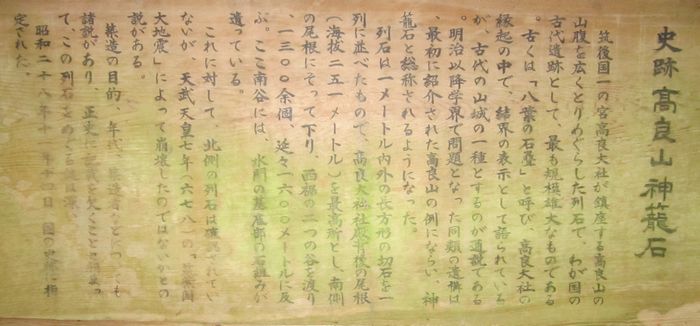 史跡高良山神籠石
筑後国一の宮高良大社が鎮座する高良山の
山腹を広くとりめぐらした列石で、わが国の
古代遺跡として、最も規模雄大なものである
。古くは「八葉の石畳」と呼び、高良大社の
縁起の中で、結界の表示として語られている
が、古代の山城の一種とするのが通説である
。明治以降学界で問題となった同類の遺構は
、最初に紹介された高良山の例にならい、神
籠石と総称されるようになった。
列石は一メートル内外の長方形の切石を一
列に並べたもので、高良大神社殿背後の尾根
(海抜二五一メートル)を最高所とし、南側
の尾根にそって下り、西裾の二つの谷を渡り
、一三〇〇余個、延々一六〇〇メートルに及
ぶ。ここ南谷には、水門の基底部の石組みが
遺っている。
これに対して、北側の列石は確認されてい
ないが、天武天皇七年(六七八)の「筑紫国
大地震」によって崩壊したのではないかとの
説がある。
築造の目的、年代、築造者などについても
諸説があり、正史に記載を欠くことと相まっ
て、この列石をめぐる謎は深い。
昭和二十八年十一月十四日、国の史跡に指
定された。